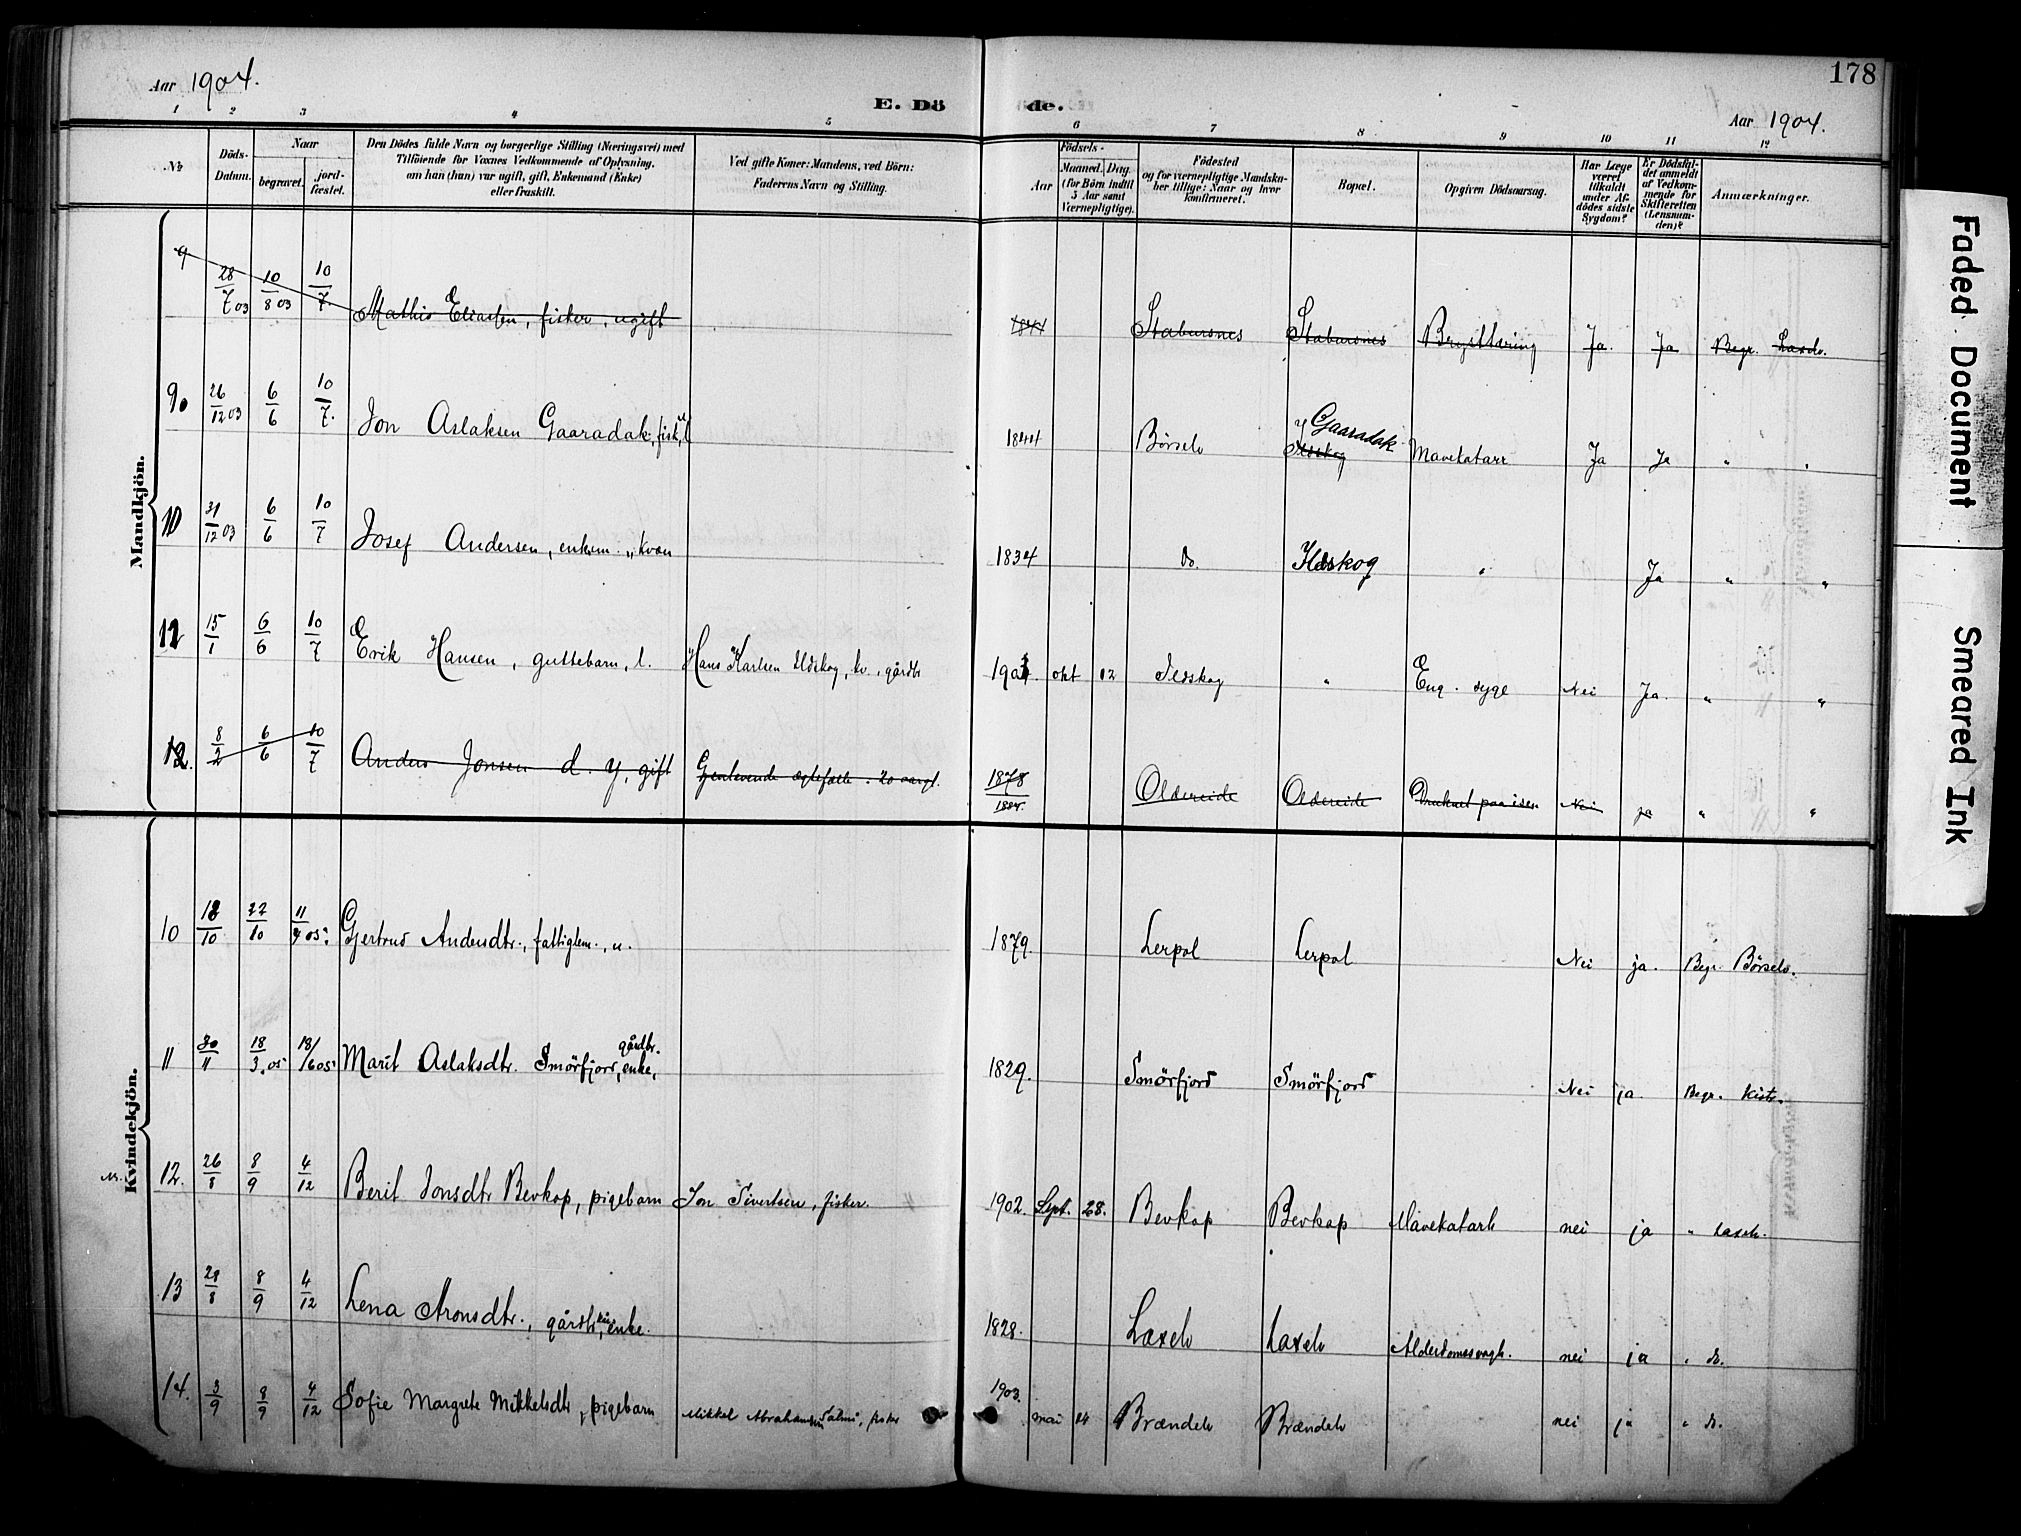 Aar 1904.
E. Döde.
178
Aar 1904.
1 2 3 4 5 6 7 8 9 10 11 12
No
Döds-Datum.
Naar
begravet.
jord-fæstet.
Den Dödes fulde Navn og borgerlige Stilling (Næringsvei) med
Tilföiende for Voxnes Vedkommende af Oplysning,
om han (hun) var ugift, gift, Enkemand (Enke)
eller fraskilt.
Ved gifte Koner: Mandens, ved Börn:
Faderens Navn og Stilling.
Födsels-
Aar
Maaned. Dag.
(for Börn indtil
5 Aar samt
Værnepligtige).
Födested
og for værnepligtige Mandska-
ber tillige: Naar og hvor
konfirmeret.
Bopæl.
Opgiven Dödsaarsag.
Har Læge
været
tilkaldt
under Af-
dödes sidste
Sygdom?
Er Dödsfal-
det anmeldt
af Vedkom-
mende for
Skifteretten
(Lensman-
den)?
Anmærkninger.
Mandkjön.
9 28/7 03 10/8 03 10/7. Mathis Eliassen, fisker, ugift 1841 Stabursnes Stabursnes Brysttæring Ja. Ja Begr. Laxelv.
90 26/12 03 6/6 10/7. Jon Aslaksen Gaaradak, fisk, 1844 Börselv Gaaradak Ildskog Mavekatarr Ja Ja " "
10 31/12 03 6/6 10/7 Josef Andersen, enkem. " kvæn 1834 do. Ildskog " Ja " "
11 15/1 6/6 10/7 Erik Hansen, guttebarn, l. Hans Karlsen Ildskog, kv., gårdbr 190 okt 12 Ildskog " Eng. syge Nei Ja. " "
12. 8/2 6/6 10/7 Anders Jonsen d. y, gift Gjenlevende ægtefælle. 20 aargl. 1878 1884. Oldereide Oldereide Druknet paa isen Nei ja " "
Kvindekjön.
10 18/10 22/10 11/7 05. Gjertrud Andersdtr., fattiglem., u. 1879. Lerpol Lerpol Nei ja. Begr. Börselv.
11 30/11 18/3. 05 18/6 05 Marit Aslaksdtr. Smörfjord, gårdbr. enke, 1829. Smörfjord Smörfjord Nei ja. Begr. Kistr.
12. 26/8 8/9 4/12 Berit Jonsdtr Bevkop, pigebarn Jon Sivertsen, fisker. 1902. Sept. 28. Bevkop Bevkop Mavekatarh nei ja " Laxelv.
13 28/8 8/9 4/12 Lena Aronsdtr., gårdbr enke. 1828. Laxelv Laxelv Alderdomssvagh. nei ja " do.
14. 3/9 8/9 4/12 Sofie Margrete Mikkelsdtr, pigebarn Mikkel Abrahamsen Salmi, fisker 1903. mai 24 Brændelv Brændelv nei ja " do.
Faded Document
Smeared Ink